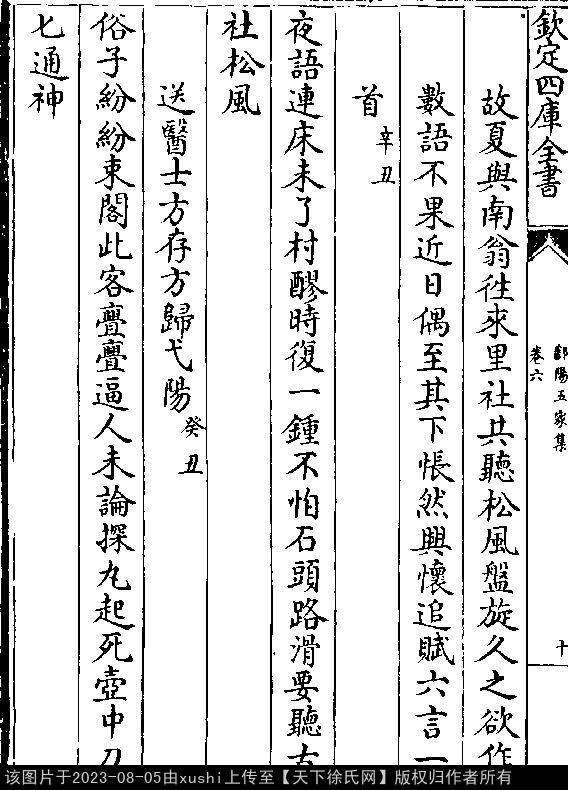 欽定四庫全書
鄱陽五家集
卷六
十
故夏與南翁徃來里社共聽松風盤旋久之欲作
數語不果近日偶至其下悵然興懷追賦六言一
首辛丑
夜語連床未了村醪時復一鍾不怕石頭路滑要聽古
社松風
送醫士方存方歸弋陽癸丑
俗子紛紛束閣此客亹亹逼人未論探丸起死壺中刀
匕通神
该图片于2023-08-05由xushi上传至【天下徐氏网】版权归作者所有